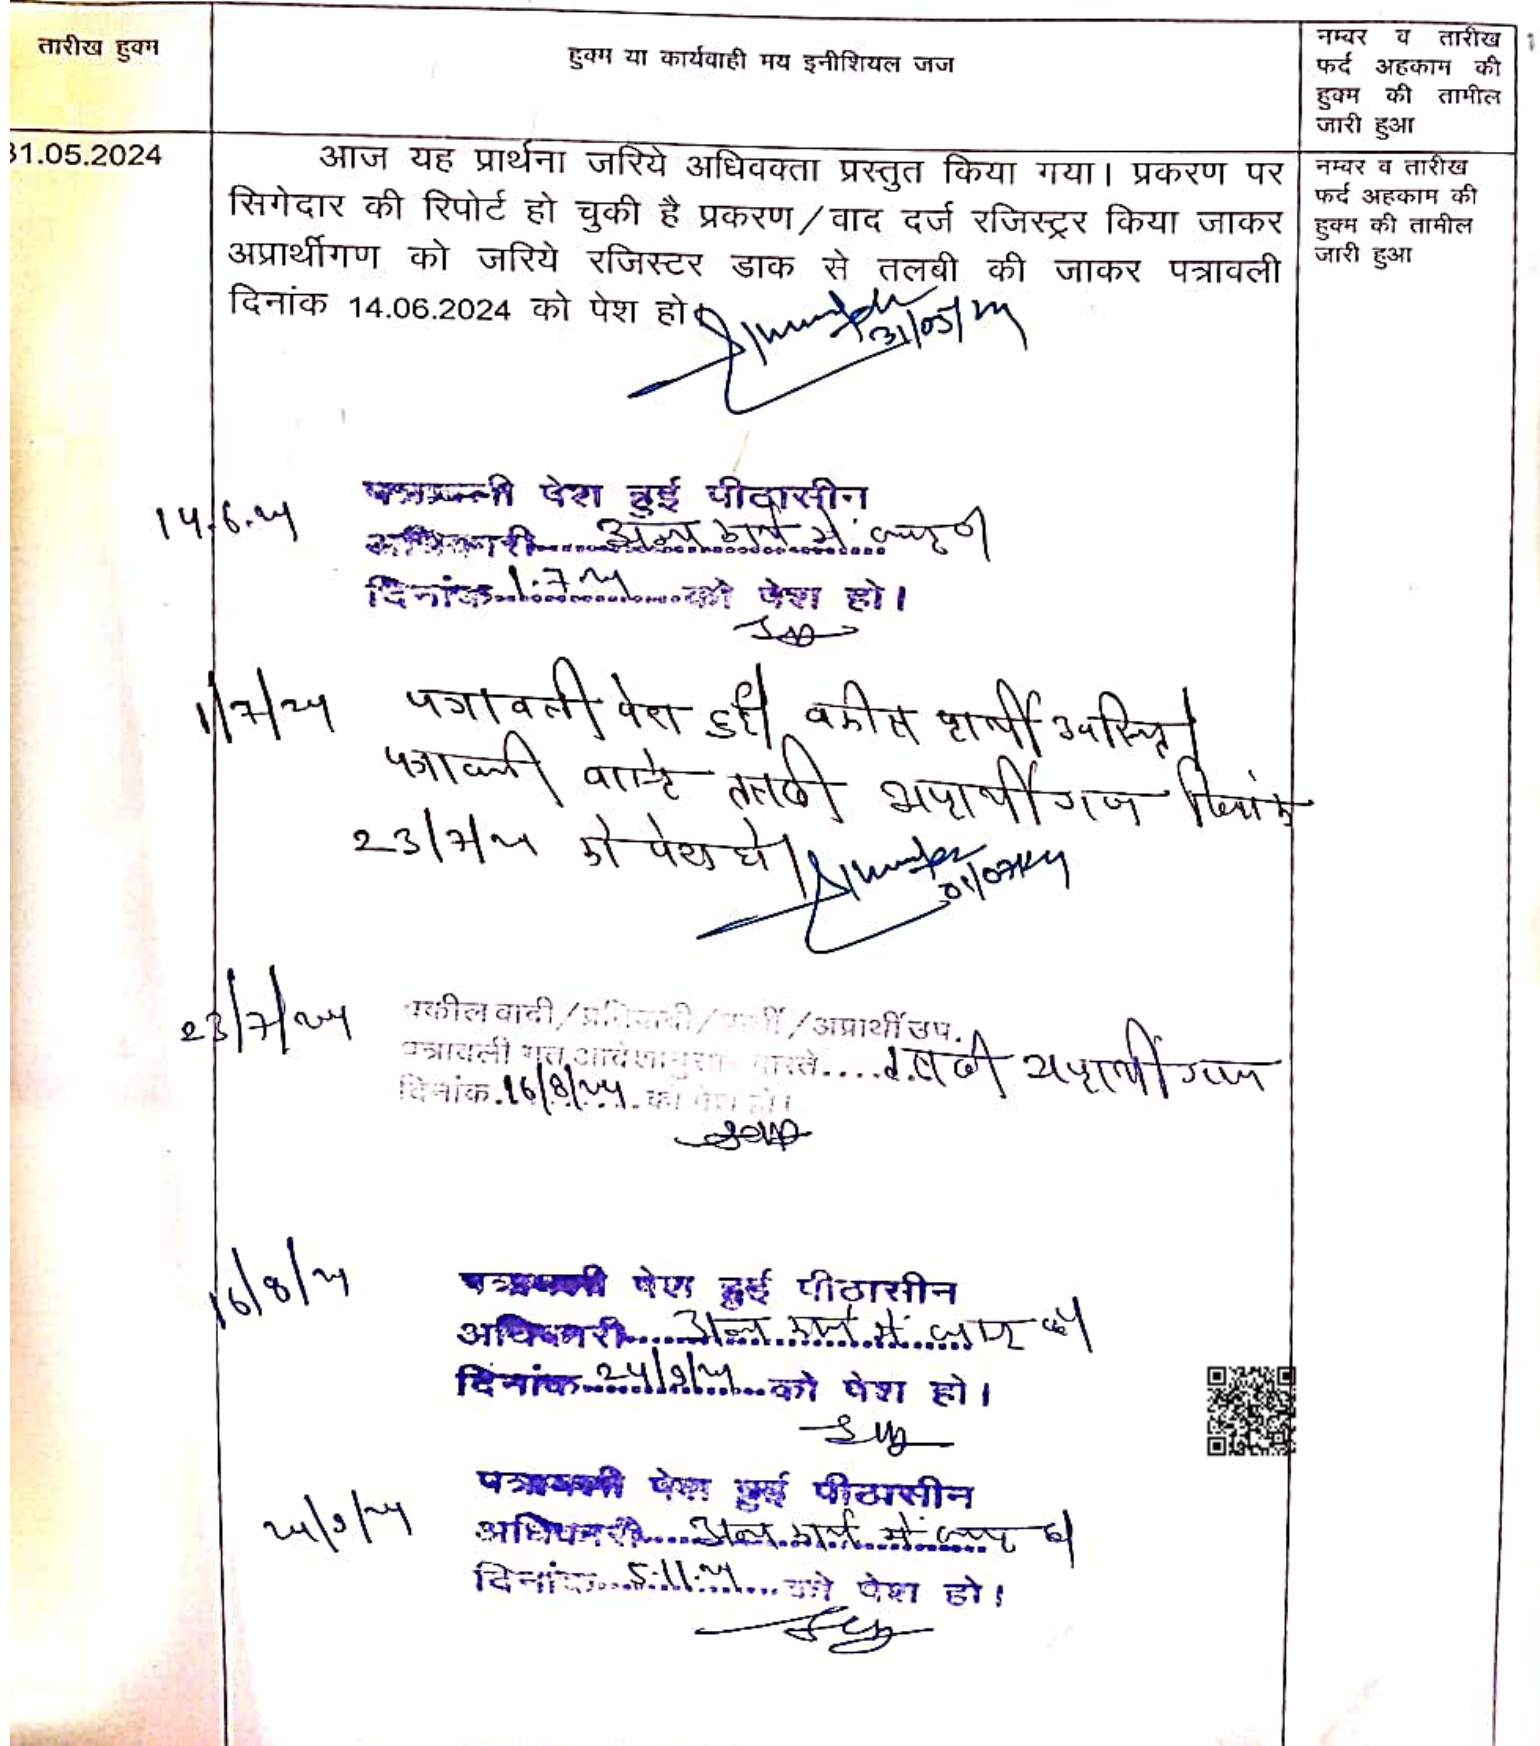 तारीख हुक्म
हुक्म या कार्यवाही मय इनीशियल जज
नम्बर व तारीख
फर्द अहकाम की
हुक्म की तामील
जारी हुआ
31.05.2024
आज यह प्रार्थना जरिये अधिवक्ता प्रस्तुत किया गया। प्रकरण पर
सिगेदार की रिपोर्ट हो चुकी है प्रकरण/वाद दर्ज रजिस्ट्रर किया जाकर
अप्रार्थीगण को जरिये रजिस्टर डाक से तलबी की जाकर पत्रावली
दिनांक 14.06.2024 को पेश हो।
नम्बर व तारीख
फर्द अहकाम की
हुक्म की तामील
जारी हुआ
31/05/24
14.6.24
पत्रावली पेश हुई पीठासीन
अधिकारी अन्य कार्य में व्यस्त है।
दिनांक 1.7.24 को पेश हो।
1/7/24
पत्रावली पेश हुई। वकील प्रार्थी उपस्थित।
पत्रावली वास्ते तलबी अप्रार्थीगण दिनांक
23/7/24 को पेश हो।
01/07/24
23/7/24
वकील वादी/प्रतिवादी/प्रार्थी/अप्रार्थी उप.
पत्रावली गत आदेशानुसार वास्ते.... तलबी अप्रार्थीगण
दिनांक 16/8/24 को पेश हो।
16/8/24
पत्रावली पेश हुई पीठासीन
अधिकारी अन्य कार्य में व्यस्त है।
दिनांक 24/9/24 को पेश हो।
24/9/24
पत्रावली पेश हुई पीठासीन
अधिकारी अन्य कार्य में व्यस्त है।
दिनांक 5.11.24 को पेश हो।